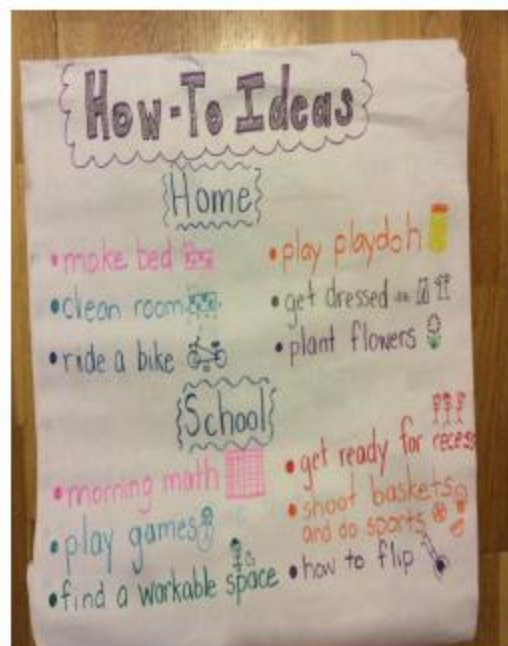 How-To Ideas
Home
• make bed
• clean room
• ride a bike
• play playdoh
• get dressed
• plant flowers
School
• morning math
• play games
• find a workable space
• get ready for recess
• shoot baskets
and do sports
• how to flip